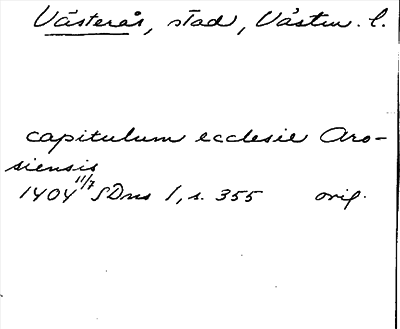 Västerås, stad, Västm. l.
capitulum ecclesie Aro-
siensis
1404 11/7 SDns 1, s. 355 orig.